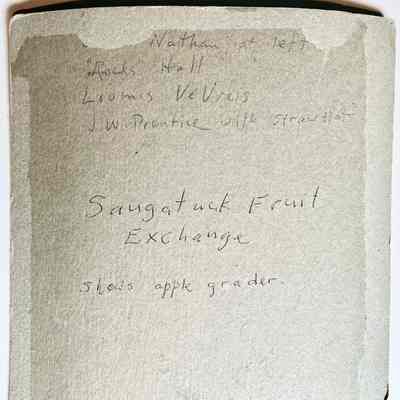 Nathan at left
Hall
Loomis VeVreis
J.W. Prentice with straw hat
Saugatuck Fruit
Exchange
shows apple grader.